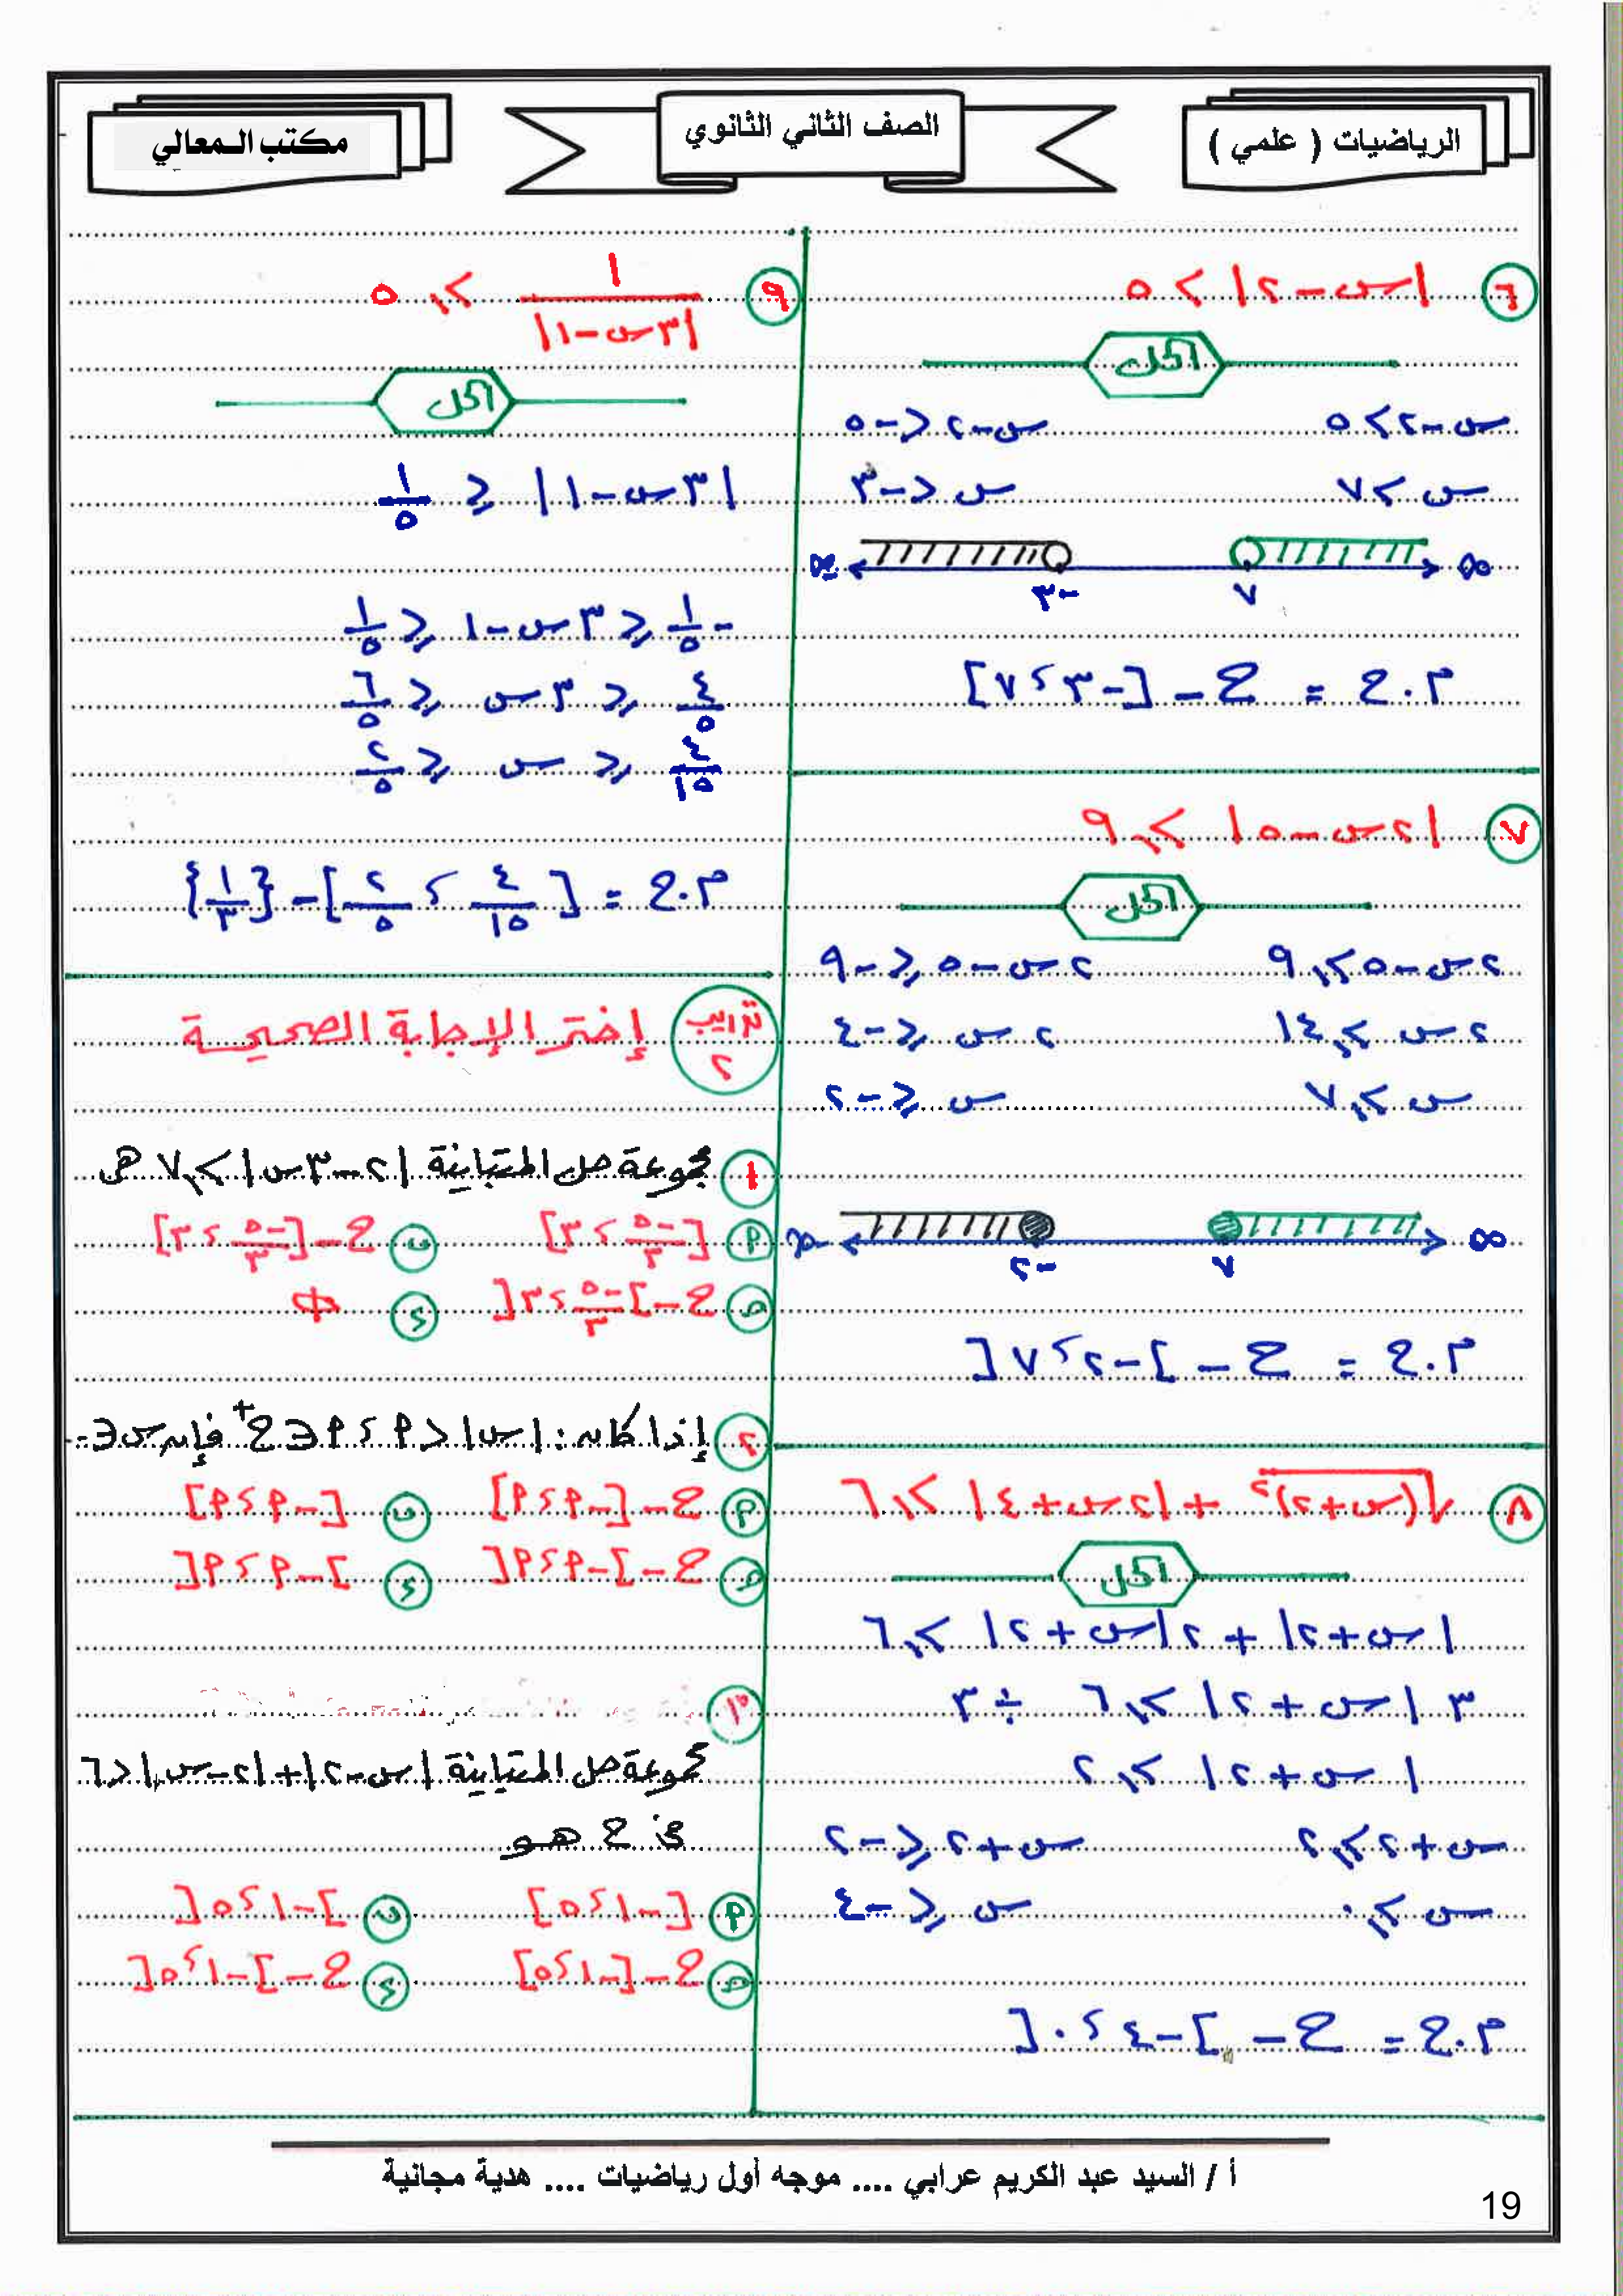 الرياضيات ( علمي )
الصف الثاني الثانوي
مكتب المعالي
٦ |س - ٢| > ٥
الحل
س - ٢ > ٥ س - ٢ < -٥
س > ٧ س < -٣
∞ ٧ -٣ -∞
م.ح = ح - [-٣ ، ٧]
٧ |٢س - ٥| ≥ ٩
الحل
٢س - ٥ ≥ ٩ ٢س - ٥ ≤ -٩
٢س ≥ ١٤ ٢س ≤ -٤
س ≥ ٧ س ≤ -٢
∞ ٧ -٢ -∞
م.ح = ح - ]-٢ ، ٧[
٨ √(س + ٢)² + |٢س + ٤| ≥ ٦
الحل
|س + ٢| + ٢|س + ٢| ≥ ٦
٣|س + ٢| ≥ ٦ ÷ ٣
|س + ٢| ≥ ٢
س + ٢ ≥ ٢ س + ٢ ≤ -٢
س ≥ ٠ س ≤ -٤
م.ح = ح - ]-٤ ، ٠[
٩ ١/|٣س - ١| ≥ ٥
الحل
|٣س - ١| ≤ ١/٥
-١/٥ ≤ ٣س - ١ ≤ ١/٥
٤/٥ ≤ ٣س ≤ ٦/٥
٤/١٥ ≤ س ≤ ٢/٥
م.ح = [٤/١٥ ، ٢/٥] - {١/٣}
تدريب ٢ إختر الإجابة الصحيحة
١ مجموعة حل المتباينة |٢ - ٣س| ≥ ٧ هى
أ [-٥/٣ ، ٣] ب ح - [-٥/٣ ، ٣]
ج ح - ]-٥/٣ ، ٣[ د Φ
٢ إذا كان : |س| < أ ، أ ∈ ح⁺ فإن س ∈ -
أ ح - [-أ ، أ] ب [-أ ، أ]
ج ح - ]-أ ، أ[ د ]-أ ، أ[
٣
مجموعة حل المتباينة |س - ٢| + |٢ - س| < ٦
في ح هو
أ [-١ ، ٥] ب ]-١ ، ٥[
ج ح - [-١ ، ٥] د ح - ]-١ ، ٥[
أ / السيد عبد الكريم عرابي .... موجه أول رياضيات .... هدية مجانية
19